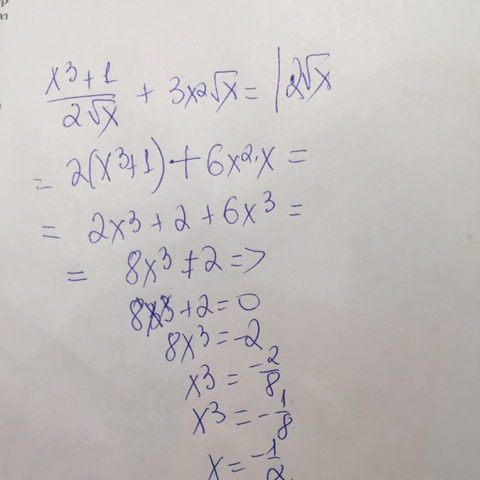 x³+1/2√x + 3x2√x = | 2√x
= 2(x³+1) + 6x²·x =
= 2x³ + 2 + 6x³ =
= 8x³ + 2 =>
8x³ + 2 = 0
8x³ = -2
x³ = -2/8
x³ = -1/8
x = -1/2